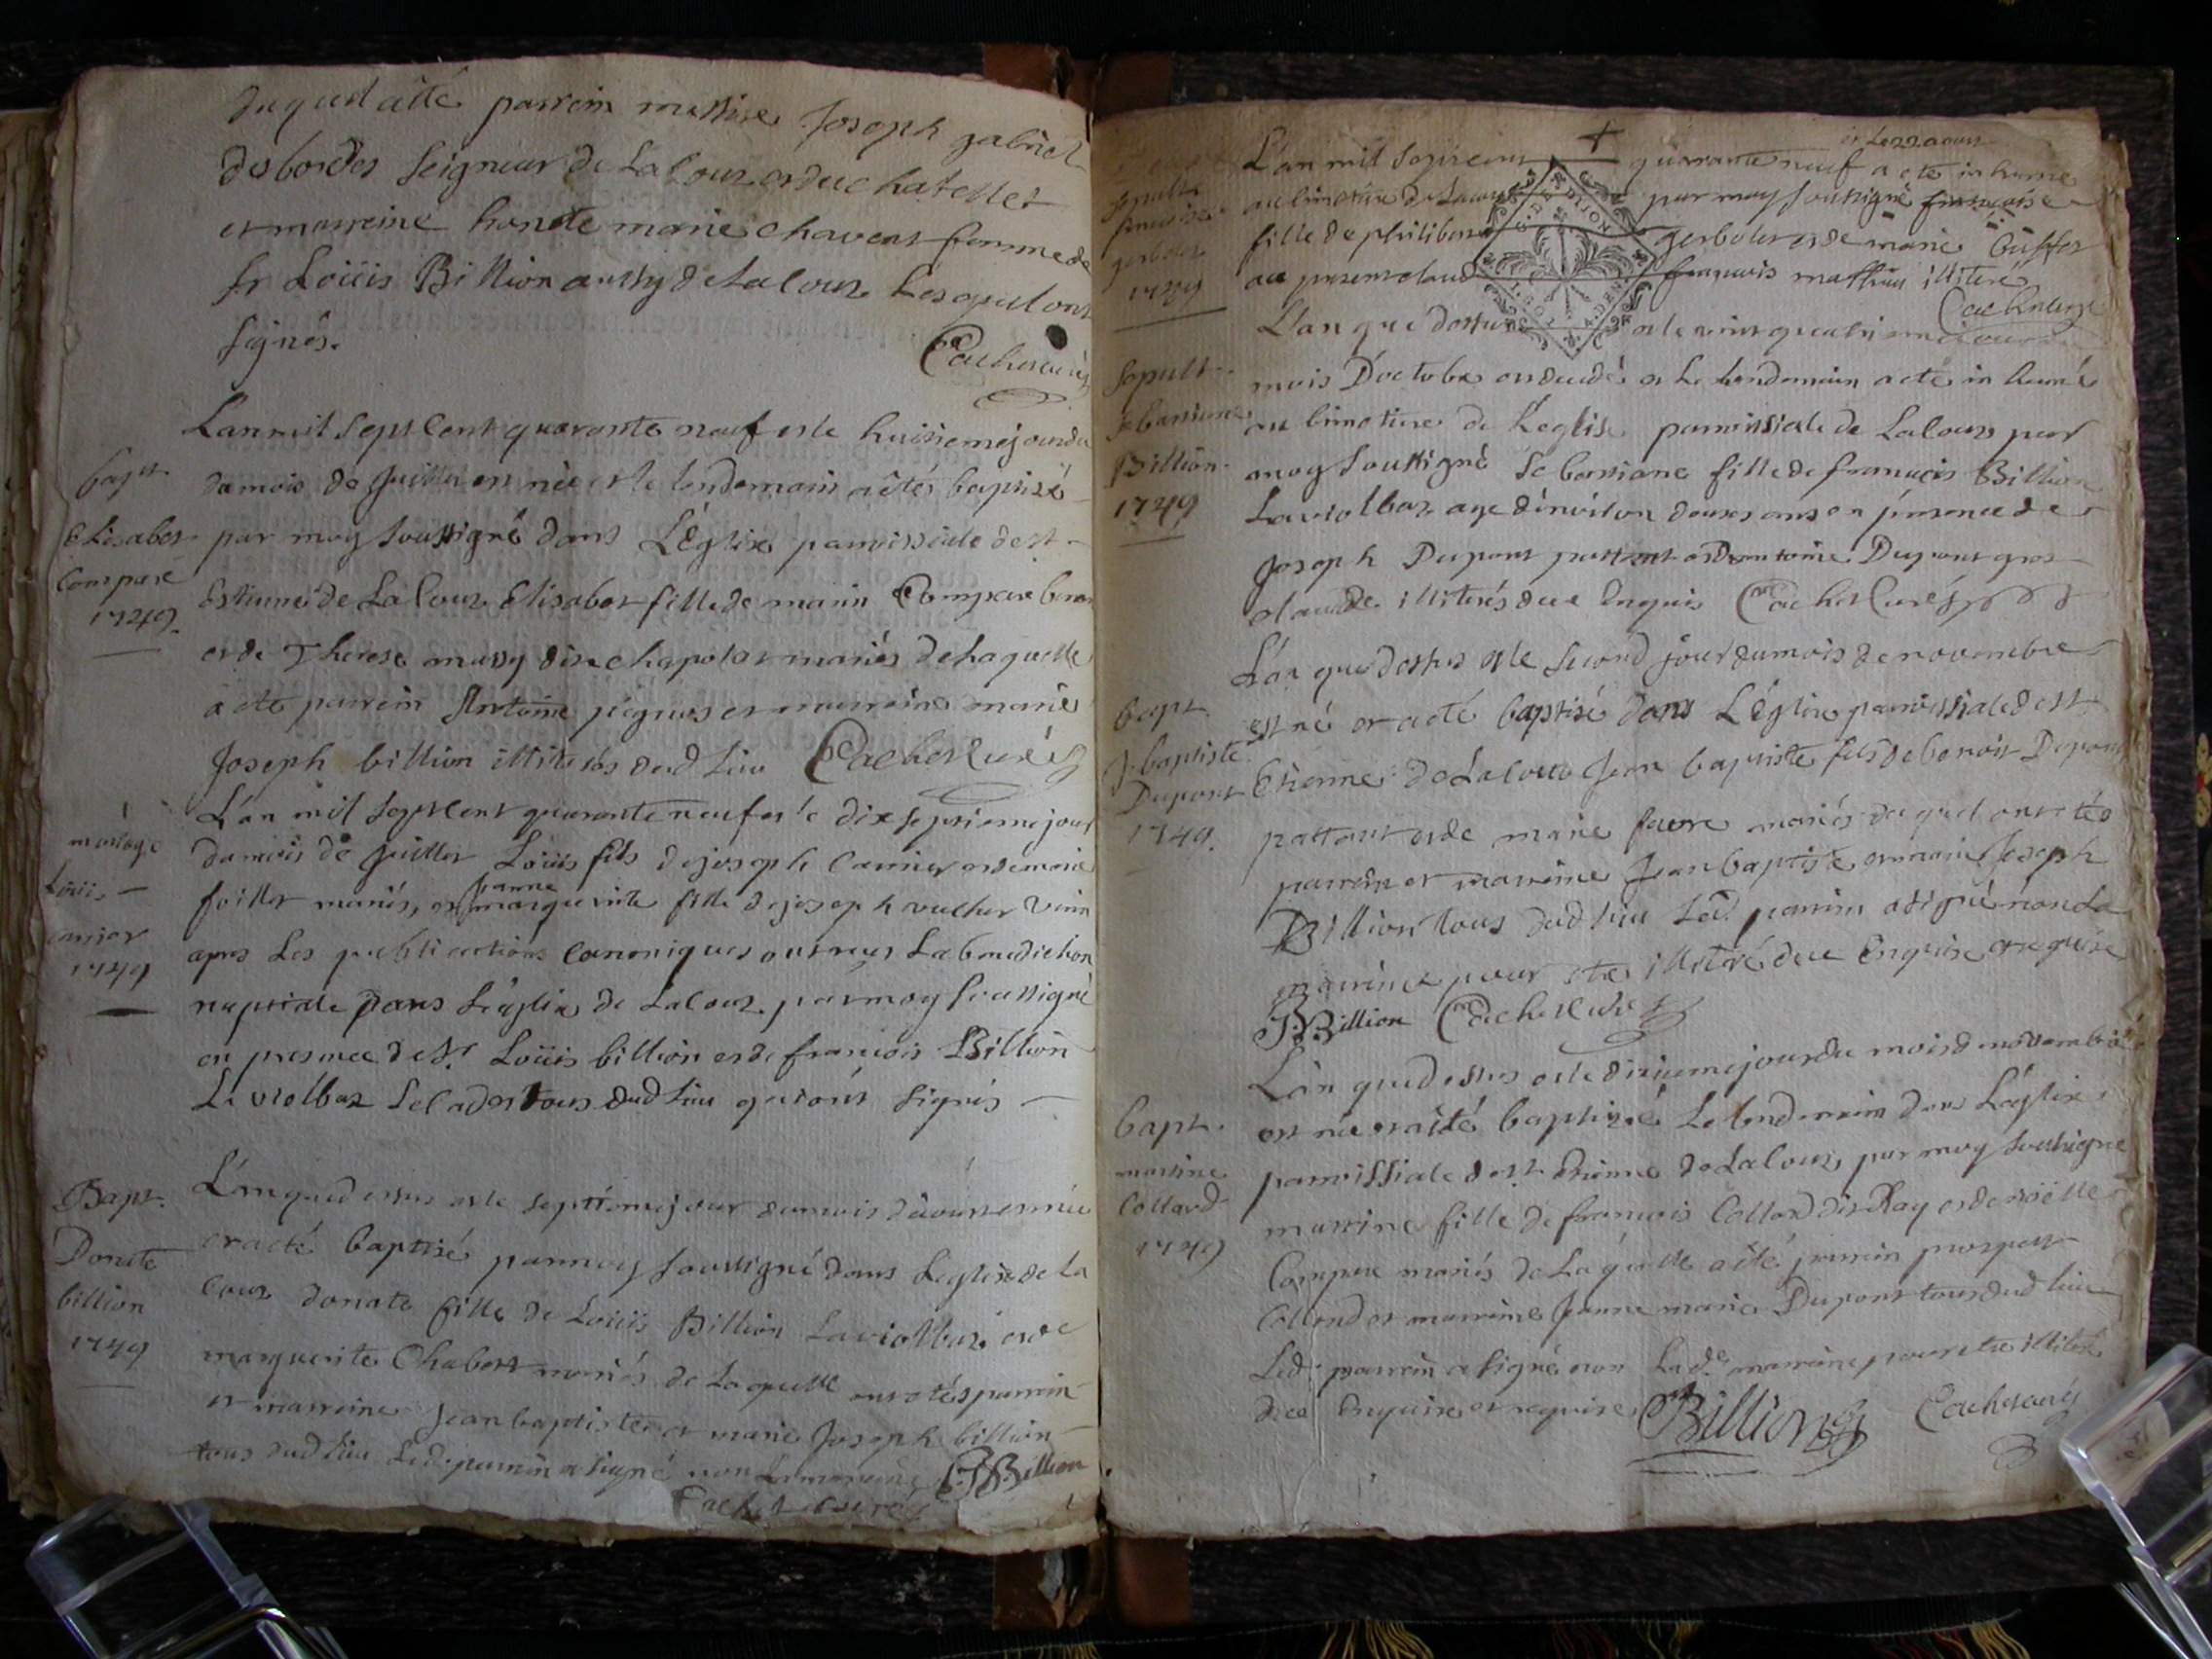 duquel a été parrein messire Joseph gabriel
desbordes Seigneur de Lalouz et du chatellet
et marreine honete marie chavent femme de
sr Loüis Billion aussy de Laloux Lesquel ont
signés.
Cachet curé
L'an mil sept cent quarante neuf et le huitieme jour du
du mois de Juillet est née et le lendemain a étés baptisé
par moy soussigné dans L'Eglise parroissiale de st
Estienne de La Louz Elisabet fille de marin Compare
et de Therese mussy dit chapolat mariés de laquelle
a eté parrein Antoine et marreine marie
Joseph billion illiterés dud lieu Cachet Curé
bapt.
Elisabet
Compare
1749.
L'an mil sept cent quarante neuf et le dix septieme jour
du mois de Juillet Loüis fils de joseph Carrier et de marie
foillet mariés, et Jeanne marguerite fille de joseph vucher
apres Les publications canoniques ont reçus La benediction
nuptiale dans L'eglise de Laloux par moy soussigné
en presence de Sr. Loüis billion et de francois Billion
Laviolbaz tous dud lieu qui ont signés
mariage
Loüis
carrier
1749
L'an que dessus et le septiéme jour du mois d'aoust est née
et a eté baptisé par moy soussigné dans L'eglise de La
Louz donate fille de Loüis Billion Laviolbaz et de
marguerite Chabert mariés de Laquelle ont etés parrein
et marreine Jean baptiste et marie Joseph billion
tous dud lieu Led. parrein a signé non La marreine JBBillion
Cachet curé
Bapt.
Donate
billion
1749
et Le 22 aoust
L'an mil sept cent quarante neuf a eté inhumé
au cimetiere de Laloux par moy soussigné francoise
fille de philibert gerbolet et de marie buffet
au present claude francois mathieu illiteré
Cachet curé
sepult.
francoise
gerbolet
1749
G. DE DIJON
L'an que dessus et le vint quatrieme jour du
mois D'octobre est decedé et Le Lendemain a eté inhumé
au cimetiere de L'eglise parroissiale de Laloux par
moy soussigné Sebastiane fille de francois Billion
Laviolbaz age d'environ douzes ans en présence de
Joseph Dupont pattant et d'antoine Dupont gros
claude illiterés deue Enquis Cachet Curé
Sepult.
sebastiane
Billion.
1749
L'an que dessus et le second jour du mois de novembre
est né et a eté baptisé dans L'Eglise parroissiale de st
Etienne de Laloux Jean baptiste fils de benoit Dupont
pattant et de marie favre mariés duquel ont etés
parrein et marreine Jean baptiste et marie Joseph
Billion tous dud lieu Led. parrein a signé non La
marreine pour etre illiteré deue Enquise et requise
JBBillion Cachet Curé
bapt.
J. baptiste
Dupont
1749.
L'an que dessus et le dixieme jour du mois de novembre
est née et a eté baptisée Le lendemain dans L'églixe
parroissiale de st. Etienne de Laloux, par moy soussigné
martine fille de francois Collard dit Ray et de
Compare mariés de Laquelle a été parrein prospert
Collard et marreine Jeanne marie Dupont tous dud lieu
Led. parrein a signé non Lade. marreine pour etre illiteré
deue Enquise et requise Billion Cachet curé
bapt.
martine
Collard
1749